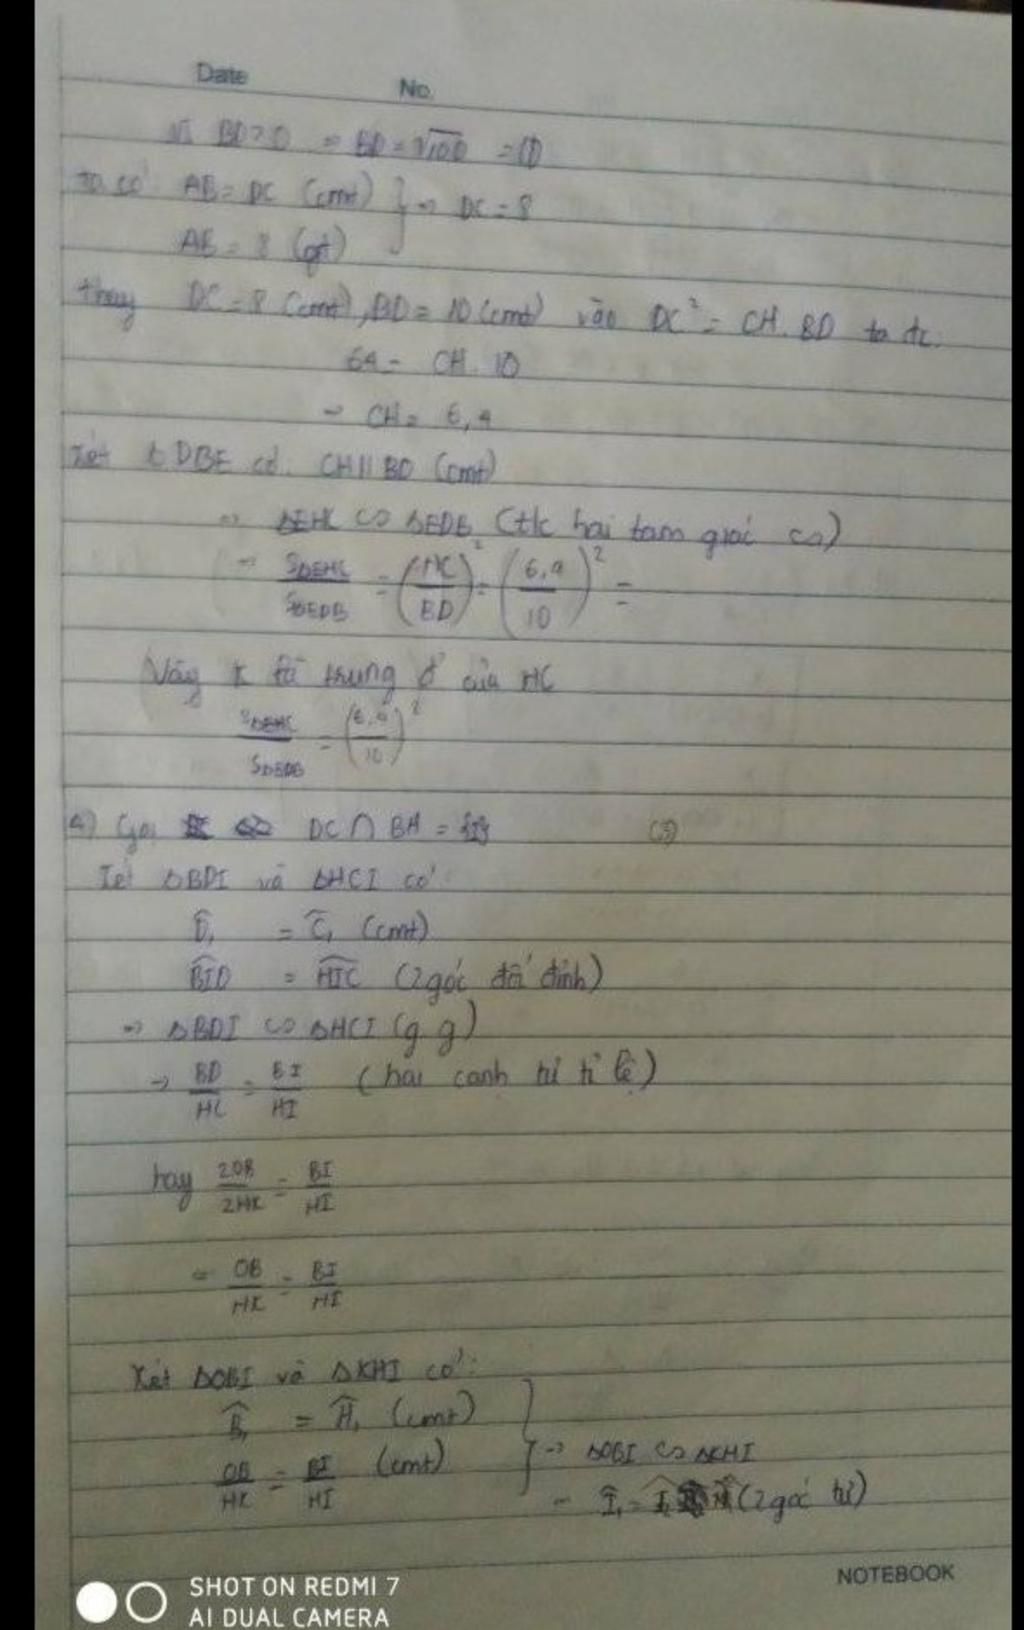 Date No.
Vì BD>0 ⇒ BD = √100 = 10
ta có AB = DC (cmt) } ⇒ DC = 8
AB = 8 (gt)
thay DC = 8 (cmt), BD = 10 (cmt) vào DC² = CH.BD ta đc.
64 = CH.10
⇒ CH = 6,4
Xét ΔDBE có CH∥BD (cmt)
⇒ ΔEHC ∽ ΔEDB (t/c hai tam giác ∽)
⇒ SΔEHC/SΔEDB = (HC/BD)² = (6,4/10)² =
Vậy K là trung đ' của HC
SΔEHC/SΔEDB = (6,4/10)²
4) Gọi DC ∩ BH = {I}
Xét ΔBDI và ΔHCI có:
D̂₁ = Ĉ₁ (cmt)
BID = HIC (2 góc đối đỉnh)
⇒ ΔBDI ∽ ΔHCI (g.g)
⇒ BD/HC = BI/HI (hai cạnh tư tỉ lệ)
hay 2OB/2HK = BI/HI
= OB/HK = BI/HI
Xét ΔOBI và ΔKHI có:
B̂₁ = Ĥ₁ (cmt)
OB/HK = BI/HI (cmt) } ⇒ ΔOBI ∽ ΔKHI
⇒ Î₁ = (2 góc tư)
NOTEBOOK
SHOT ON REDMI 7
AI DUAL CAMERA